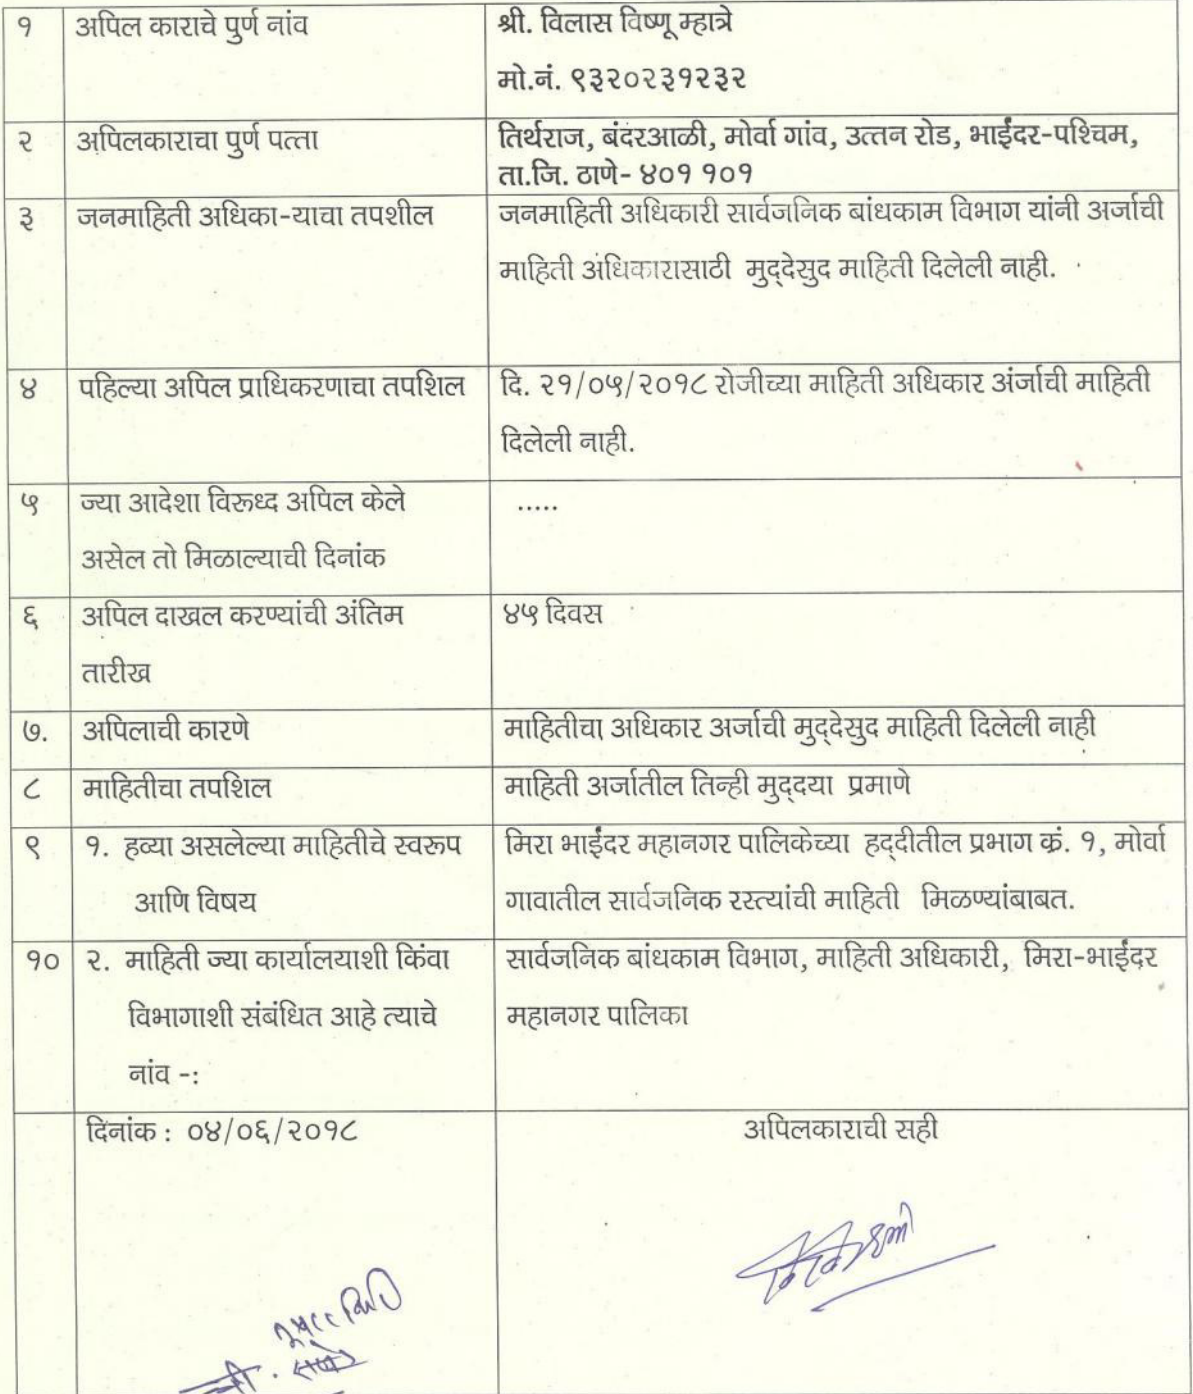 १ अपिल काराचे पुर्ण नांव श्री. विलास विष्णू म्हात्रे
मो.नं. ९३२०२३१२३२
२ अपिलकाराचा पुर्ण पत्ता तिर्थराज, बंदरआळी, मोर्वा गांव, उत्तन रोड, भाईंदर-पश्चिम,
ता.जि. ठाणे- ४०१ १०१
३ जनमाहिती अधिका-याचा तपशील जनमाहिती अधिकारी सार्वजनिक बांधकाम विभाग यांनी अर्जाची
माहिती अधिकारासाठी मुद्देसुद माहिती दिलेली नाही.
४ पहिल्या अपिल प्राधिकरणाचा तपशिल दि. २१/०५/२०१८ रोजीच्या माहिती अधिकार अंर्जाची माहिती
दिलेली नाही.
५ ज्या आदेशा विरूध्द अपिल केले .....
असेल तो मिळाल्याची दिनांक
६ अपिल दाखल करण्यांची अंतिम ४५ दिवस
तारीख
७. अपिलाची कारणे माहितीचा अधिकार अर्जाची मुद्देसुद माहिती दिलेली नाही
८ माहितीचा तपशिल माहिती अर्जातील तिन्ही मुद्दया प्रमाणे
९ १. हव्या असलेल्या माहितीचे स्वरूप मिरा भाईंदर महानगर पालिकेच्या हद्दीतील प्रभाग क्रं. १, मोर्वा
आणि विषय गावातील सार्वजनिक रस्त्यांची माहिती मिळण्यांबाबत.
१० २. माहिती ज्या कार्यालयाशी किंवा सार्वजनिक बांधकाम विभाग, माहिती अधिकारी, मिरा-भाईंदर
विभागाशी संबंधित आहे त्याचे महानगर पालिका
नांव -:
दिनांक : ०४/०६/२०१८ अपिलकाराची सही